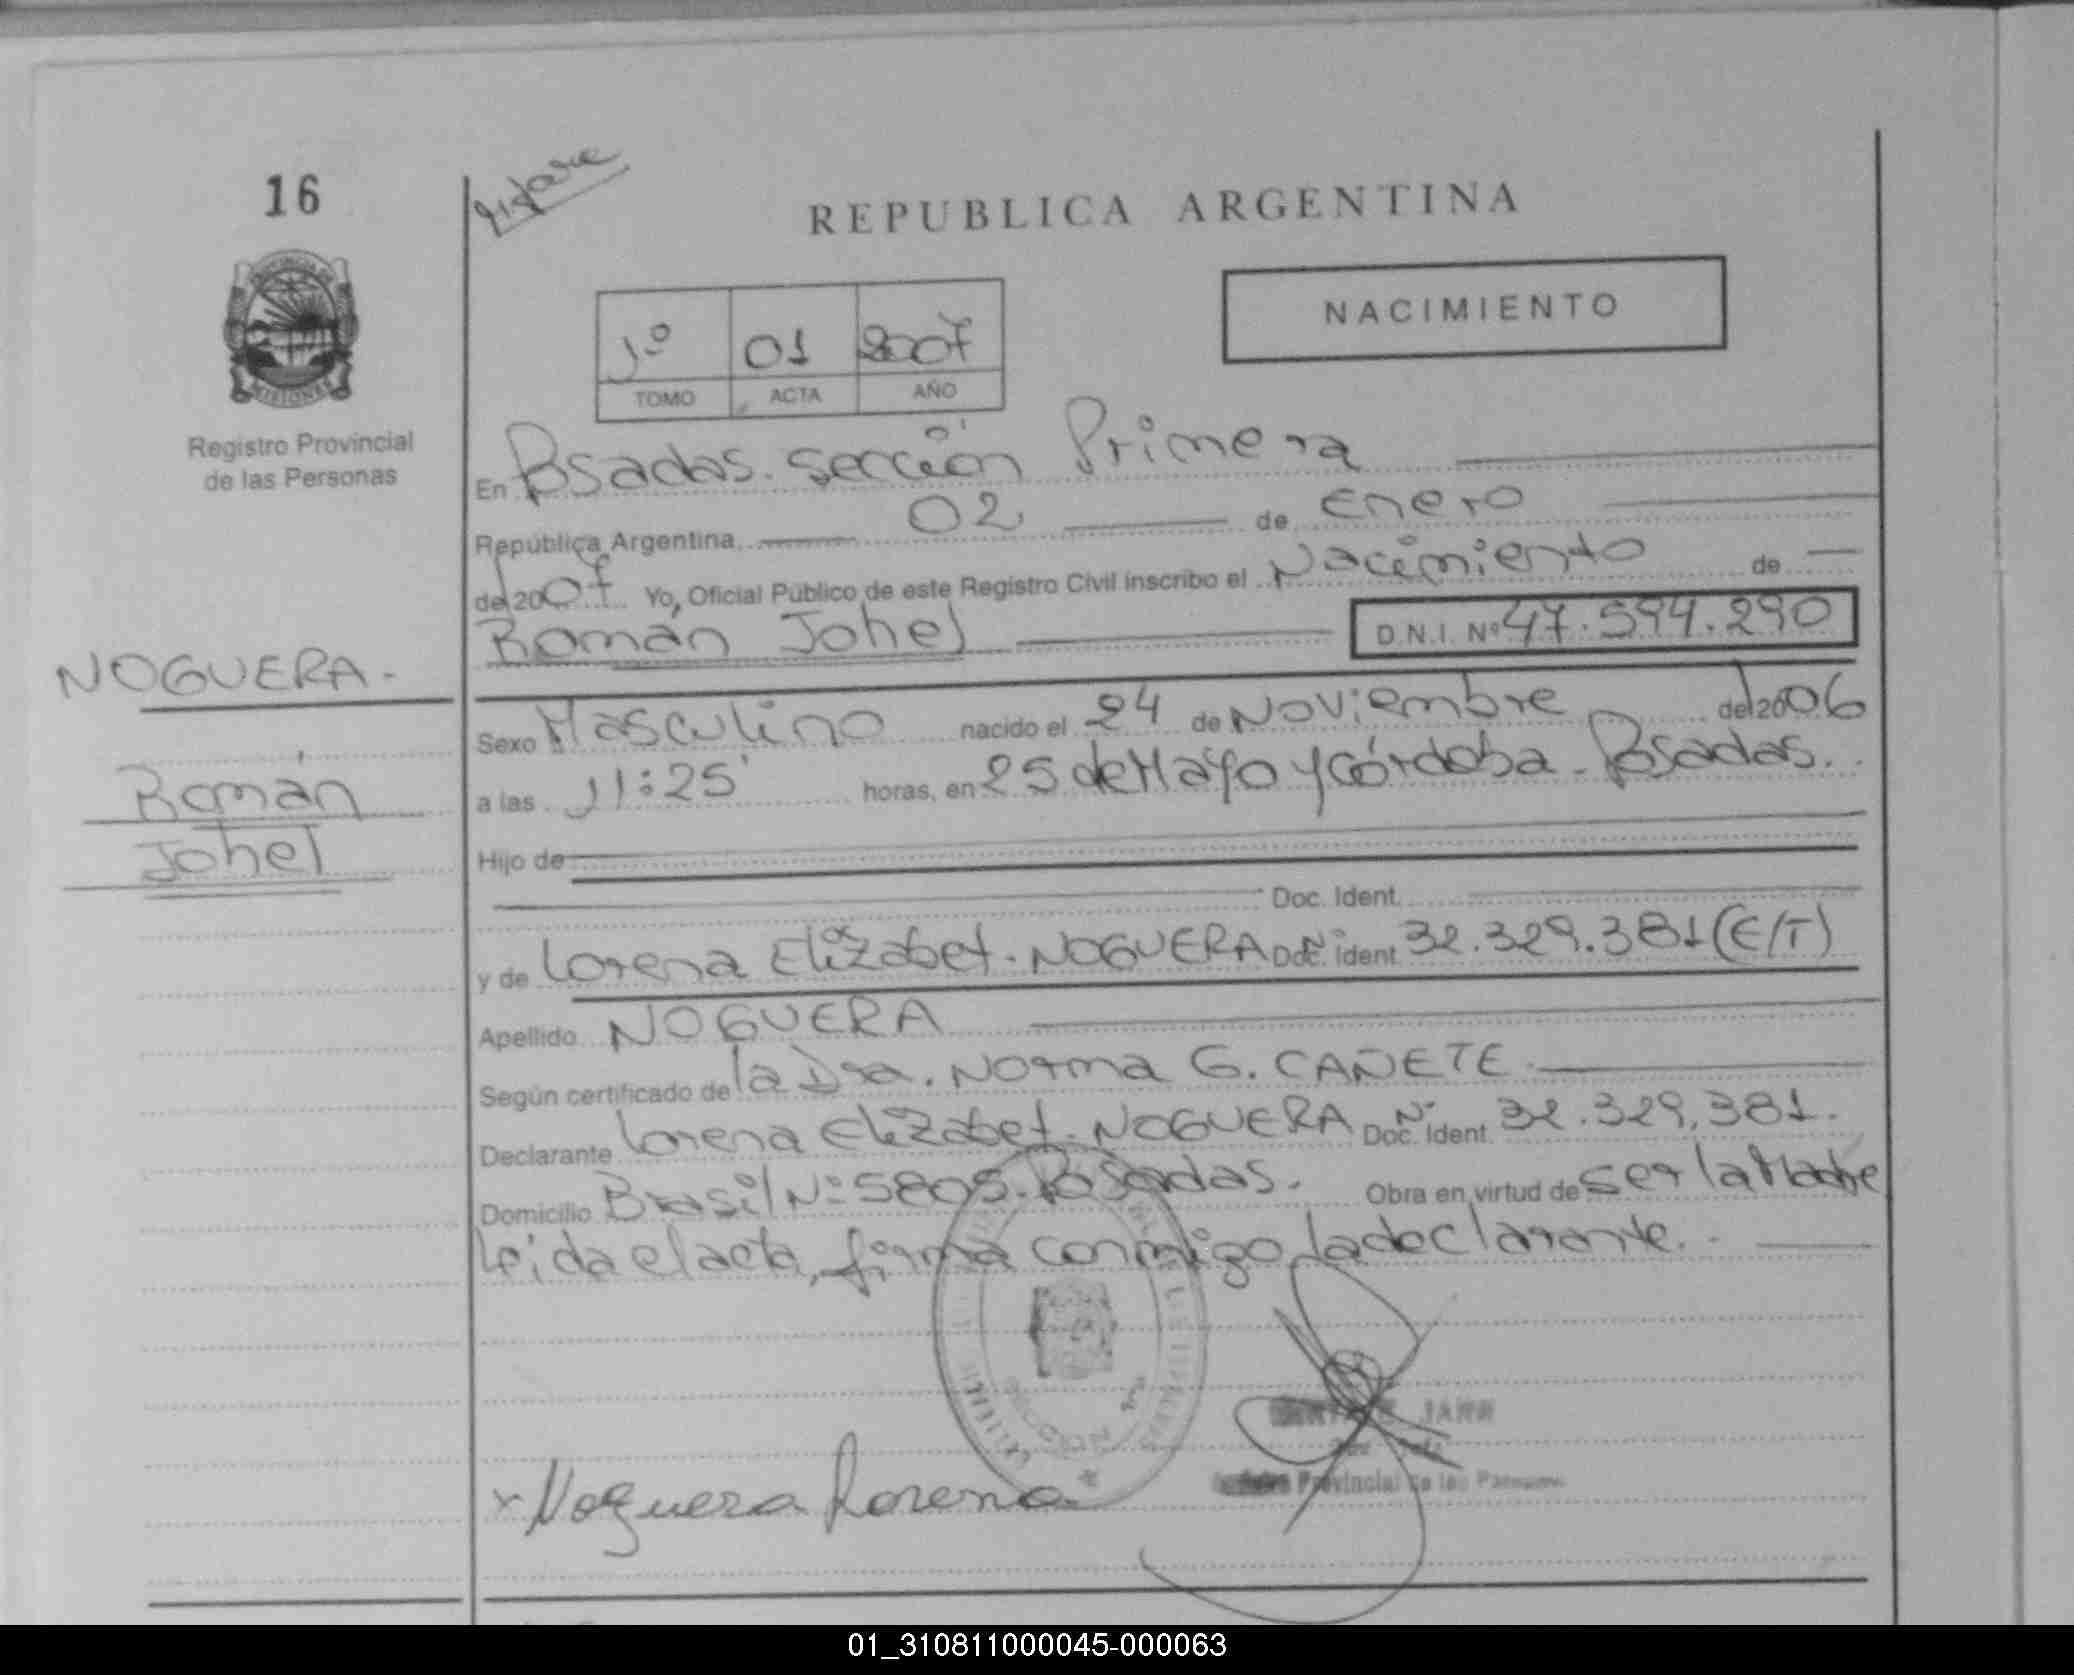 16
REPUBLICA ARGENTINA
PROVINCIA DE
MISIONES
NACIMIENTO
1º 01 2007
TOMO ACTA AÑO
Registro Provincial
de las Personas
En Posadas. Sección Primera
República Argentina, 02 de Enero
del 2007 Yo, Oficial Público de este Registro Civil inscribo el Nacimiento de
Román Johel D.N.I. Nº 47.594.290
NOGUERA.-
Román
Johel
Sexo Masculino nacido el 24 de Noviembre del 2006
a las 11:25' horas, en 25 de Mayo y Córdoba - Posadas.
Hijo de
Doc. Ident.
y de Lorena Elizabet. NOGUERA Doc. Nº Ident 32.329.381 (E/T)
Apellido NOGUERA
Según certificado de la Dra. Norma G. CAÑETE
Declarante Lorena Elizabet. NOGUERA Doc. Nº Ident. 32.329.381.
Domicilio Brasil Nº 5805. Posadas. Obra en virtud de ser la Madre
leida el acta, firma conmigo la declarante.
JARA
Provincial de las Personas
x Noguera Lorena
01_310811000045-000063